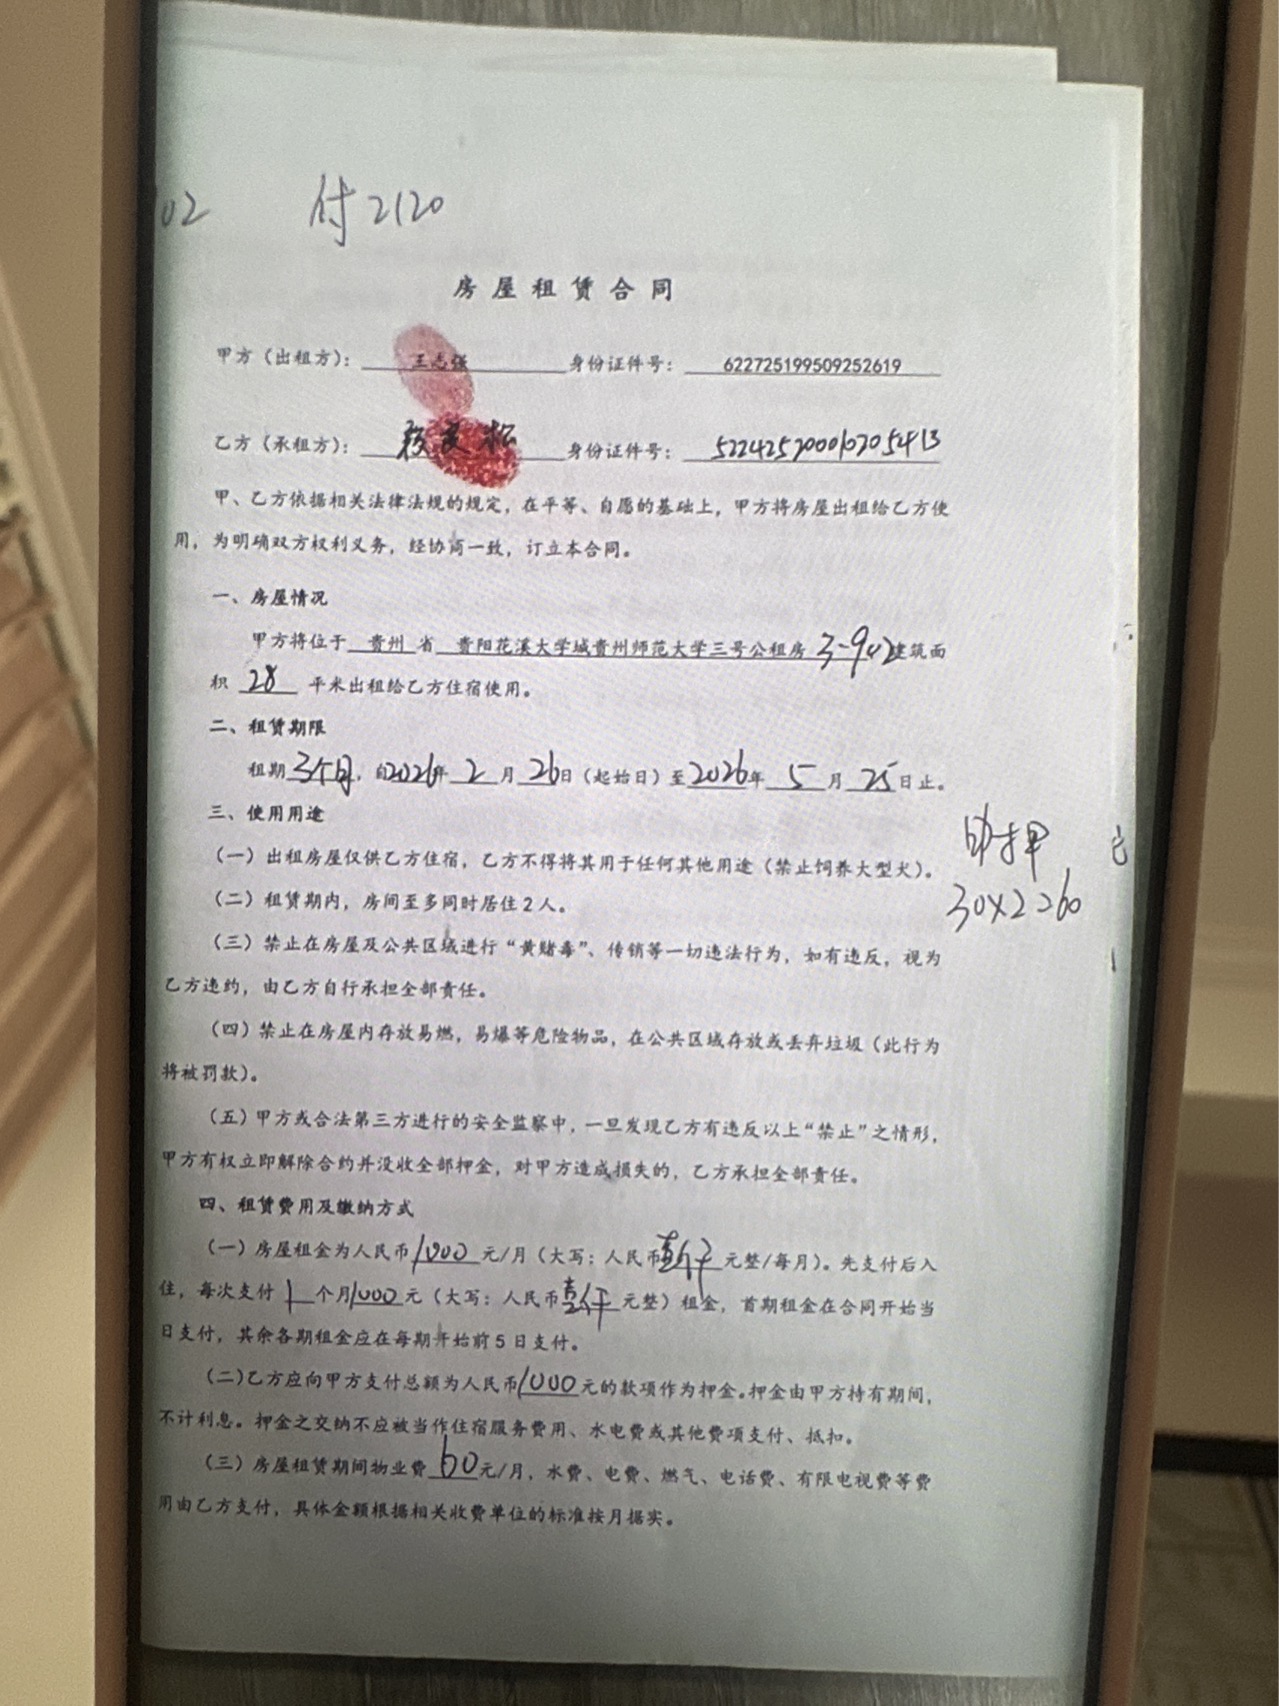 02 付2120
房屋租赁合同
甲方（出租方）： 王志强 身份证件号： 622725199509252619
乙方（承租方）： 松 身份证件号：
甲、乙方依据相关法律法规的规定，在平等、自愿的基础上，甲方将房屋出租给乙方使
用，为明确双方权利义务，经协商一致，订立本合同。
一、房屋情况
甲方将位于 贵州 省 贵阳花溪大学城贵州师范大学三号公租房 3-902 建筑面
积 28 平米出租给乙方住宿使用。
二、租赁期限
租期 3个月，自2026年 2 月 26日（起始日）至2026年 5 月 25日止。
三、使用用途
（一）出租房屋仅供乙方住宿，乙方不得将其用于任何其他用途（禁止饲养大型犬）。
押
30x2=60
（二）租赁期内，房间至多同时居住2人。
（三）禁止在房屋及公共区域进行“黄赌毒”、传销等一切违法行为，如有违反，视为
乙方违约，由乙方自行承担全部责任。
（四）禁止在房屋内存放易燃，易爆等危险物品，在公共区域存放或丢弃垃圾（此行为
将被罚款）。
（五）甲方或合法第三方进行的安全监察中，一旦发现乙方有违反以上“禁止”之情形，
甲方有权立即解除合约并没收全部押金，对甲方造成损失的，乙方承担全部责任。
四、租赁费用及缴纳方式
（一）房屋租金为人民币1000元/月（大写：人民币壹仟元整/每月）。先支付后入
住，每次支付 1 个月1000元（大写：人民币壹仟元整）租金，首期租金在合同开始当
日支付，其余各期租金应在每期开始前5日支付。
（二）乙方应向甲方支付总额为人民币1000元的款项作为押金。押金由甲方持有期间，
不计利息。押金之交纳不应被当作住宿服务费用、水电费或其他费项支付、抵扣。
（三）房屋租赁期间物业费 60元/月，水费、电费、燃气、电话费、有限电视费等费
用由乙方支付，具体金额根据相关收费单位的标准按月据实。